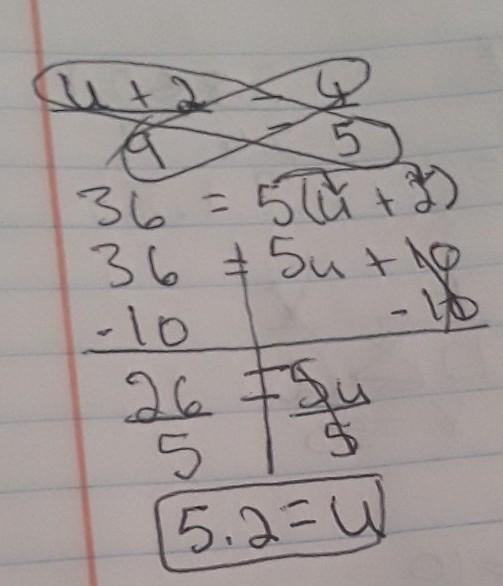 u + 2 = 4
9 5
36 = 5(u + 2)
36 = 5u + 10
-10 -10
26 = 5u
5 5
5.2 = u